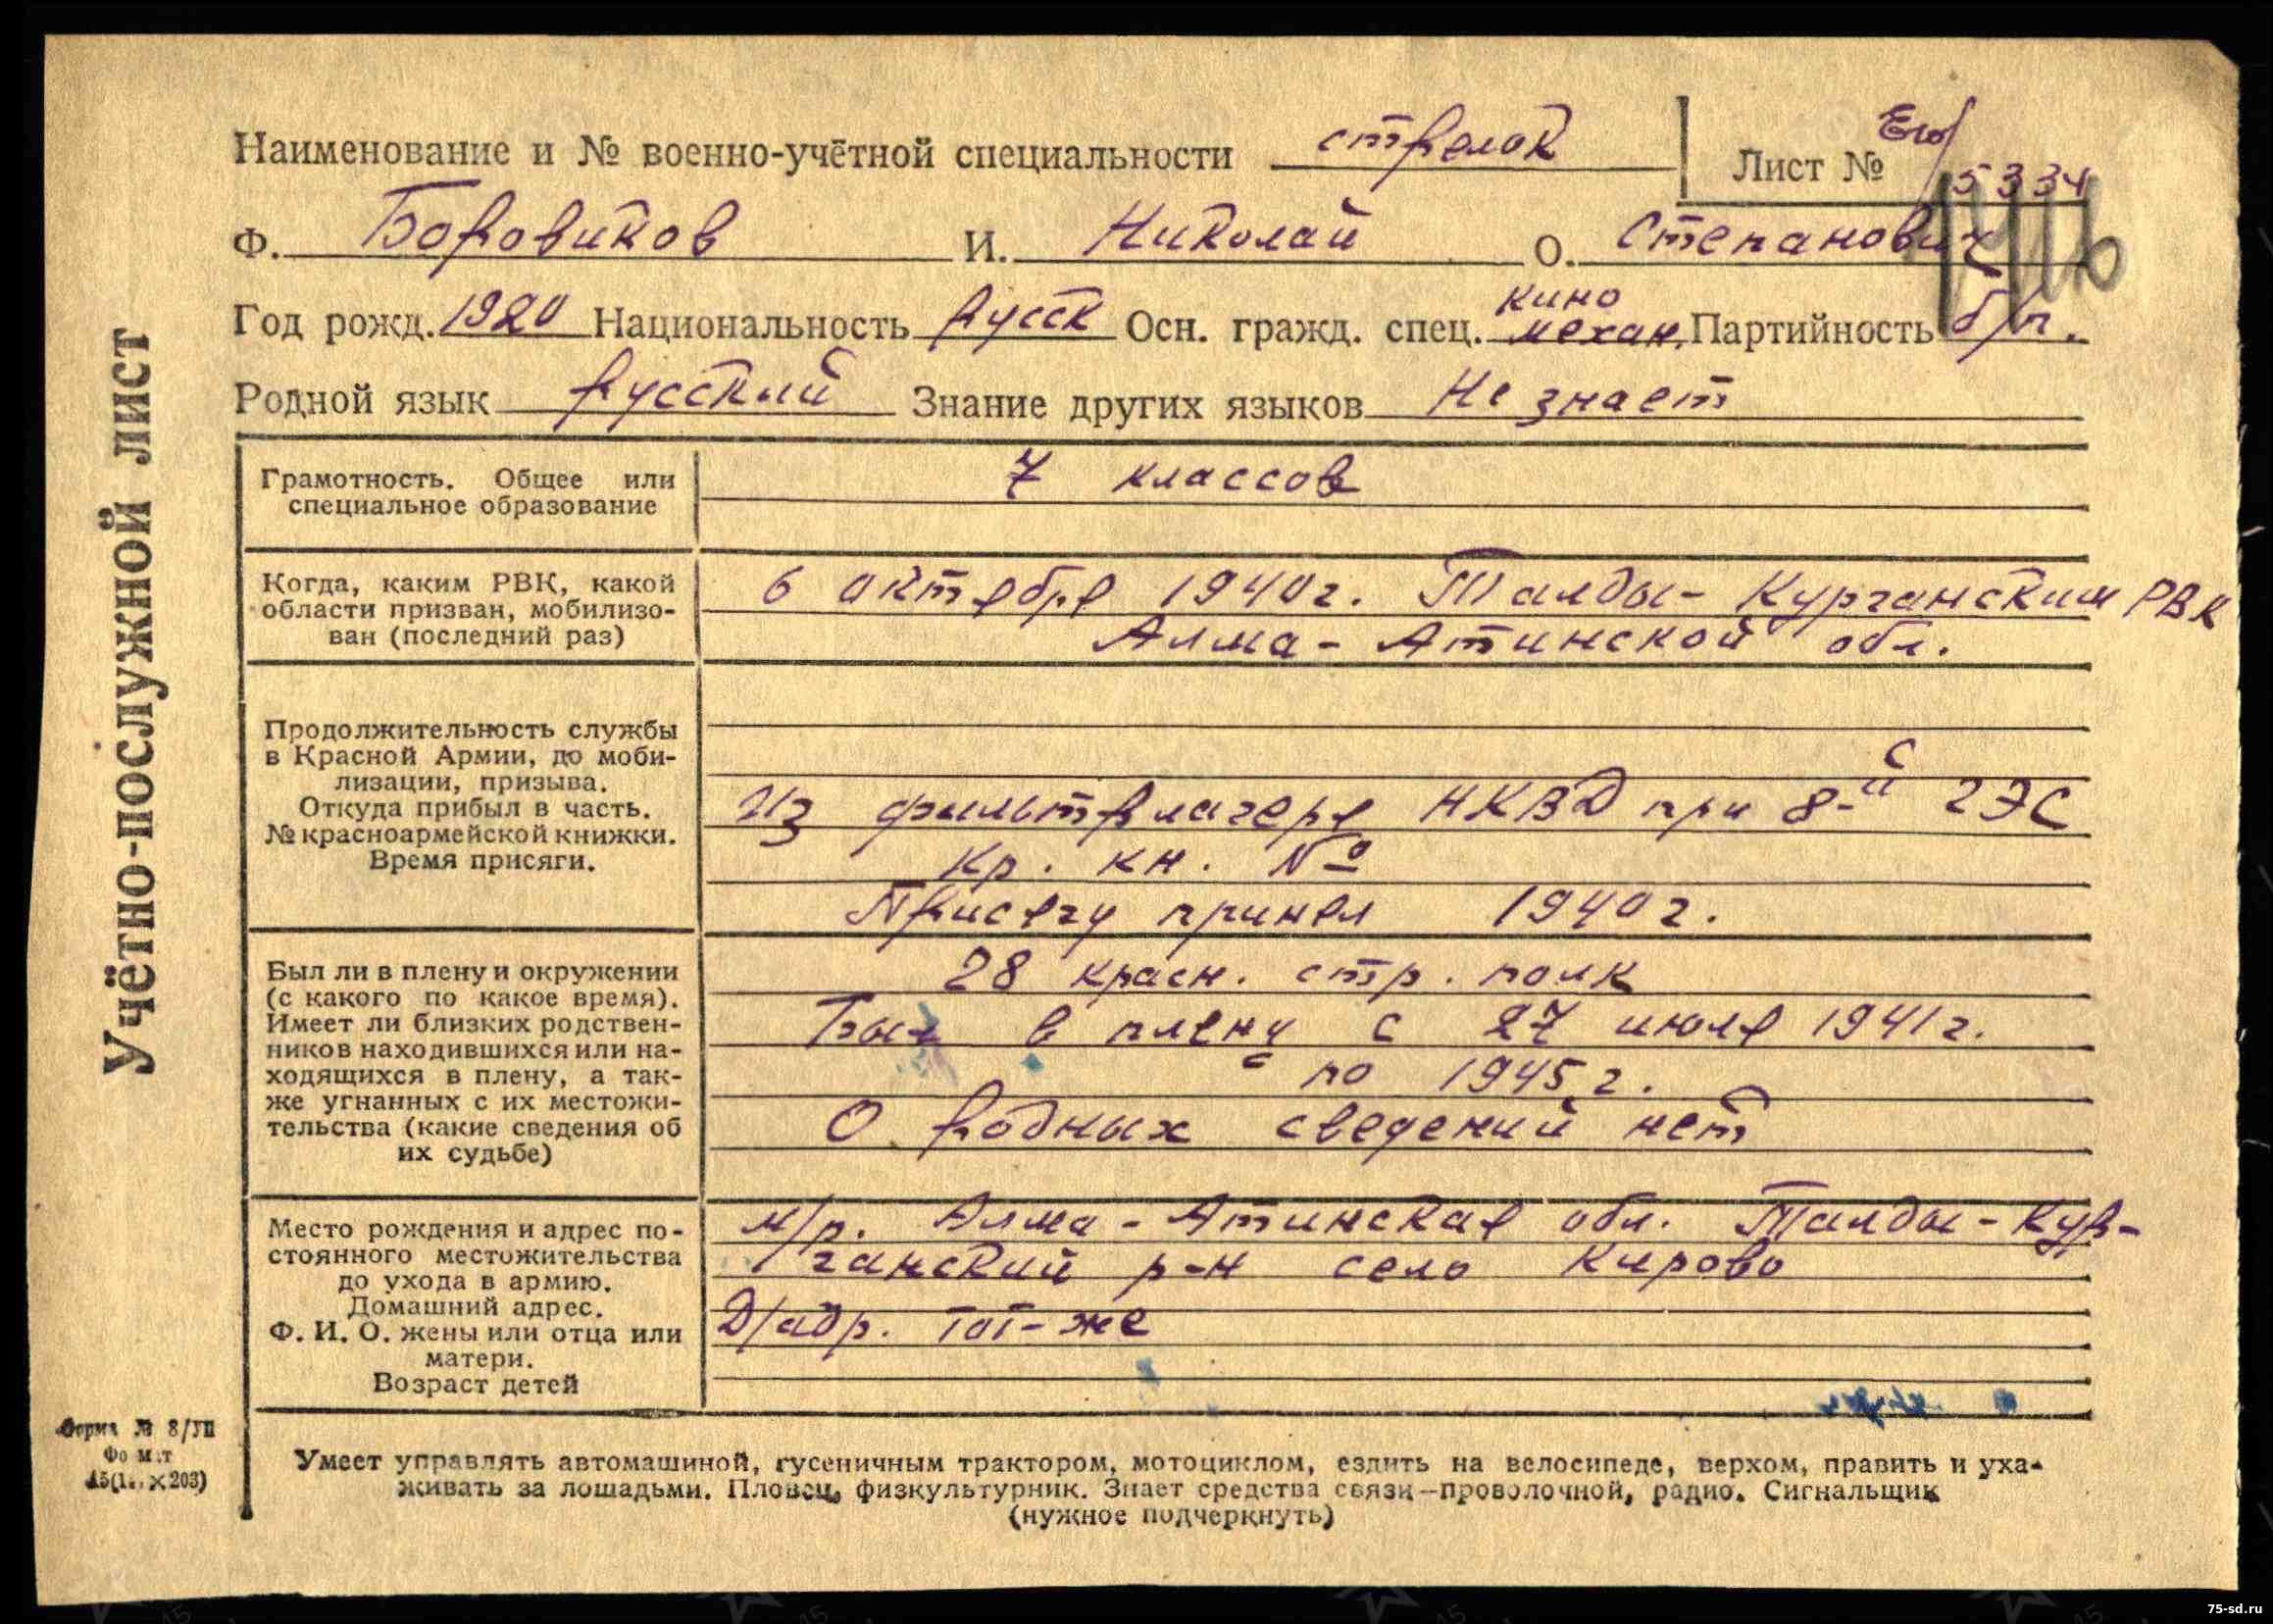 Учётно-послужной лист
Наименование и № военно-учётной специальности стрелок Лист № 5334
Ф. Боровиков И. Николай О. Степанович
Год рожд. 1920 Национальность русск Осн. гражд. спец. кино механ. Партийность б/п.
Родной язык русский Знание других языков Не знает
Грамотность. Общее или
специальное образование
7 классов
Когда, каким РВК, какой
области призван, мобилизо-
ван (последний раз)
6 октября 1940г. Талды-Курганским РВК
Алма-Атинской обл.
Продолжительность службы
в Красной Армии, до моби-
лизации, призыва.
Откуда прибыл в часть.
№ красноармейской книжки.
Время присяги.
Из фильтрлагеря НКВД при 8-й с ГЭС
Кр. кн. №
Присягу принял 1940г.
Был ли в плену и окружении
(с какого по какое время).
Имеет ли близких родствен-
ников находившихся или на-
ходящихся в плену, а так-
же угнанных с их местожи-
тельства (какие сведения об
их судьбе)
28 красн. стр. полк
Был в плену с 27 июля 1941г.
по 1945г.
О родных сведений нет
Место рождения и адрес по-
стоянного местожительства
до ухода в армию.
Домашний адрес.
Ф. И. О. жены или отца или
матери.
Возраст детей
м/р. Алма-Атинская обл. Талды-Кур-
ганский р-н село Кирово
Д/адр. тот-же
Форма № 8/УП
Фо м т
А5(1 ×203)
Умеет управлять автомашиной, гусеничным трактором, мотоциклом, ездить на велосипеде, верхом, править и уха-
живать за лошадьми. Пловец, физкультурник. Знает средства связи—проволочной, радио. Сигнальщик
(нужное подчеркнуть)
75-sd.ru